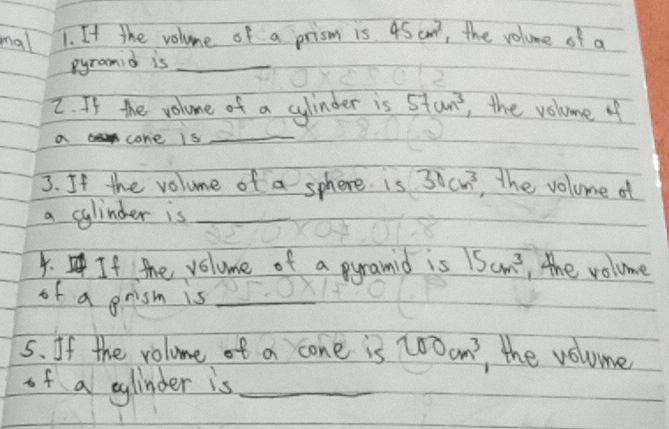 mal
1. If the volume of a prism is 45 cm³, the volume of a
pyramid is ____
2. If the volume of a cylinder is 57cm³, the volume of
a cone is ____
3. If the volume of a sphere is 30cm³, the volume of
a cylinder is ____
4. If the volume of a pyramid is 15cm³, the volume
of a prism is ____
5. If the volume of a cone is 200cm³, the volume
of a cylinder is ____